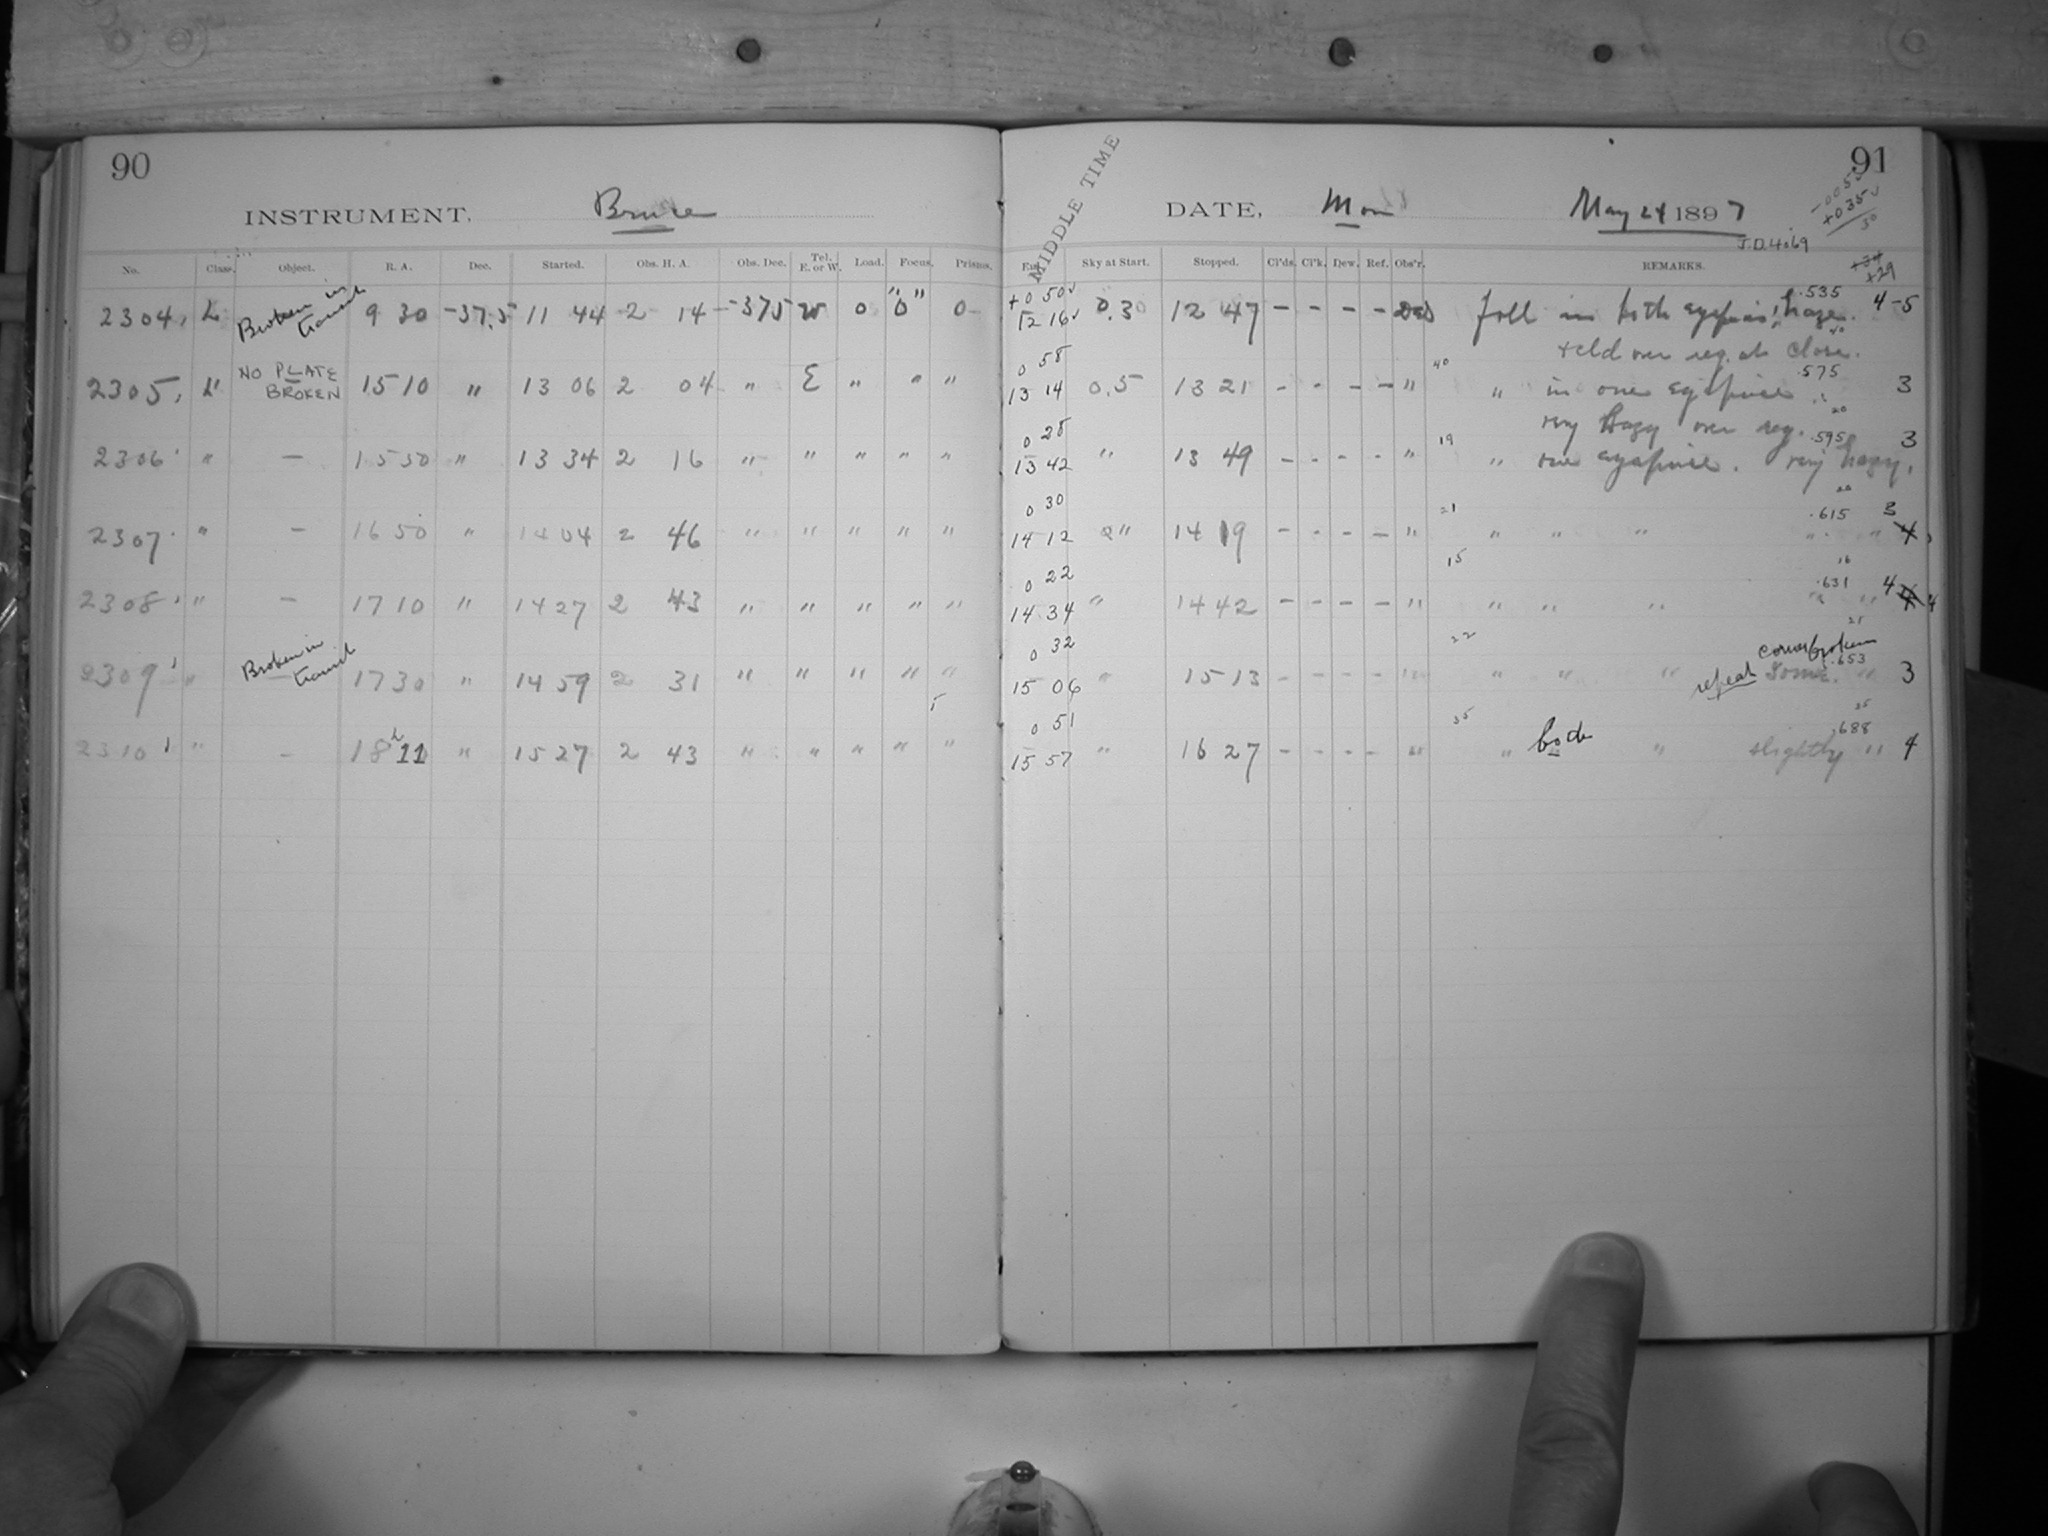 90
INSTRUMENT, Bruce
No. Class. Object. R. A. Dec. Started. Obs. H. A. Obs. Dec. Tel. E. or W. Load. Focus. Prisms.
2304, L Broken in transit 9 30 -37.5 11 44 2 14 -37.5 W 0 "0" 0
2305, L NO PLATE BROKEN 15 10 " 13 06 2 04 " E " " "
2306 " - 15 50 " 13 34 2 16 " " " " "
2307 " - 16 50 " 14 04 2 46 " " " " "
2308 " - 17 10 " 14 27 2 43 " " " " "
2309 " Broken in transit 17 30 " 14 59 2 31 " " " " "
2310 " - 18h 11 " 15 27 2 43 " " " " "
91
MIDDLE TIME
DATE, Mon May 24 1897
-005
+035
30
J.D. 4069
+34
+29
Sky at Start. Stopped. Cl'ds. Cl'k. Dew. Ref. Obs'r. REMARKS.
+0 50
12 16 0.30 12 47 - - - - foll in both eyepieces, haze. .535 4-5
40
+cld over reg. at close.
0 58
13 14 0.5 13 21 - - - - " 40 " in one eyepiece .575 3
very hazy over reg.
20
0 28
13 42 " 13 49 - - - - " 19 " one eyepiece. very hazy. .595 3
0 30
14 12 " 14 19 - - - - " 21 " " " .615 " " 3 4
20
0 22
14 34 " 14 42 - - - - " 15 " " " .631 " " 4 4
16
0 32
15 06 " 15 13 - - - - " 22 " " " repeat corner broken Some .653 " 3
0 51
15 57 " 16 27 - - - - " 35 " both " slightly .688 " 4